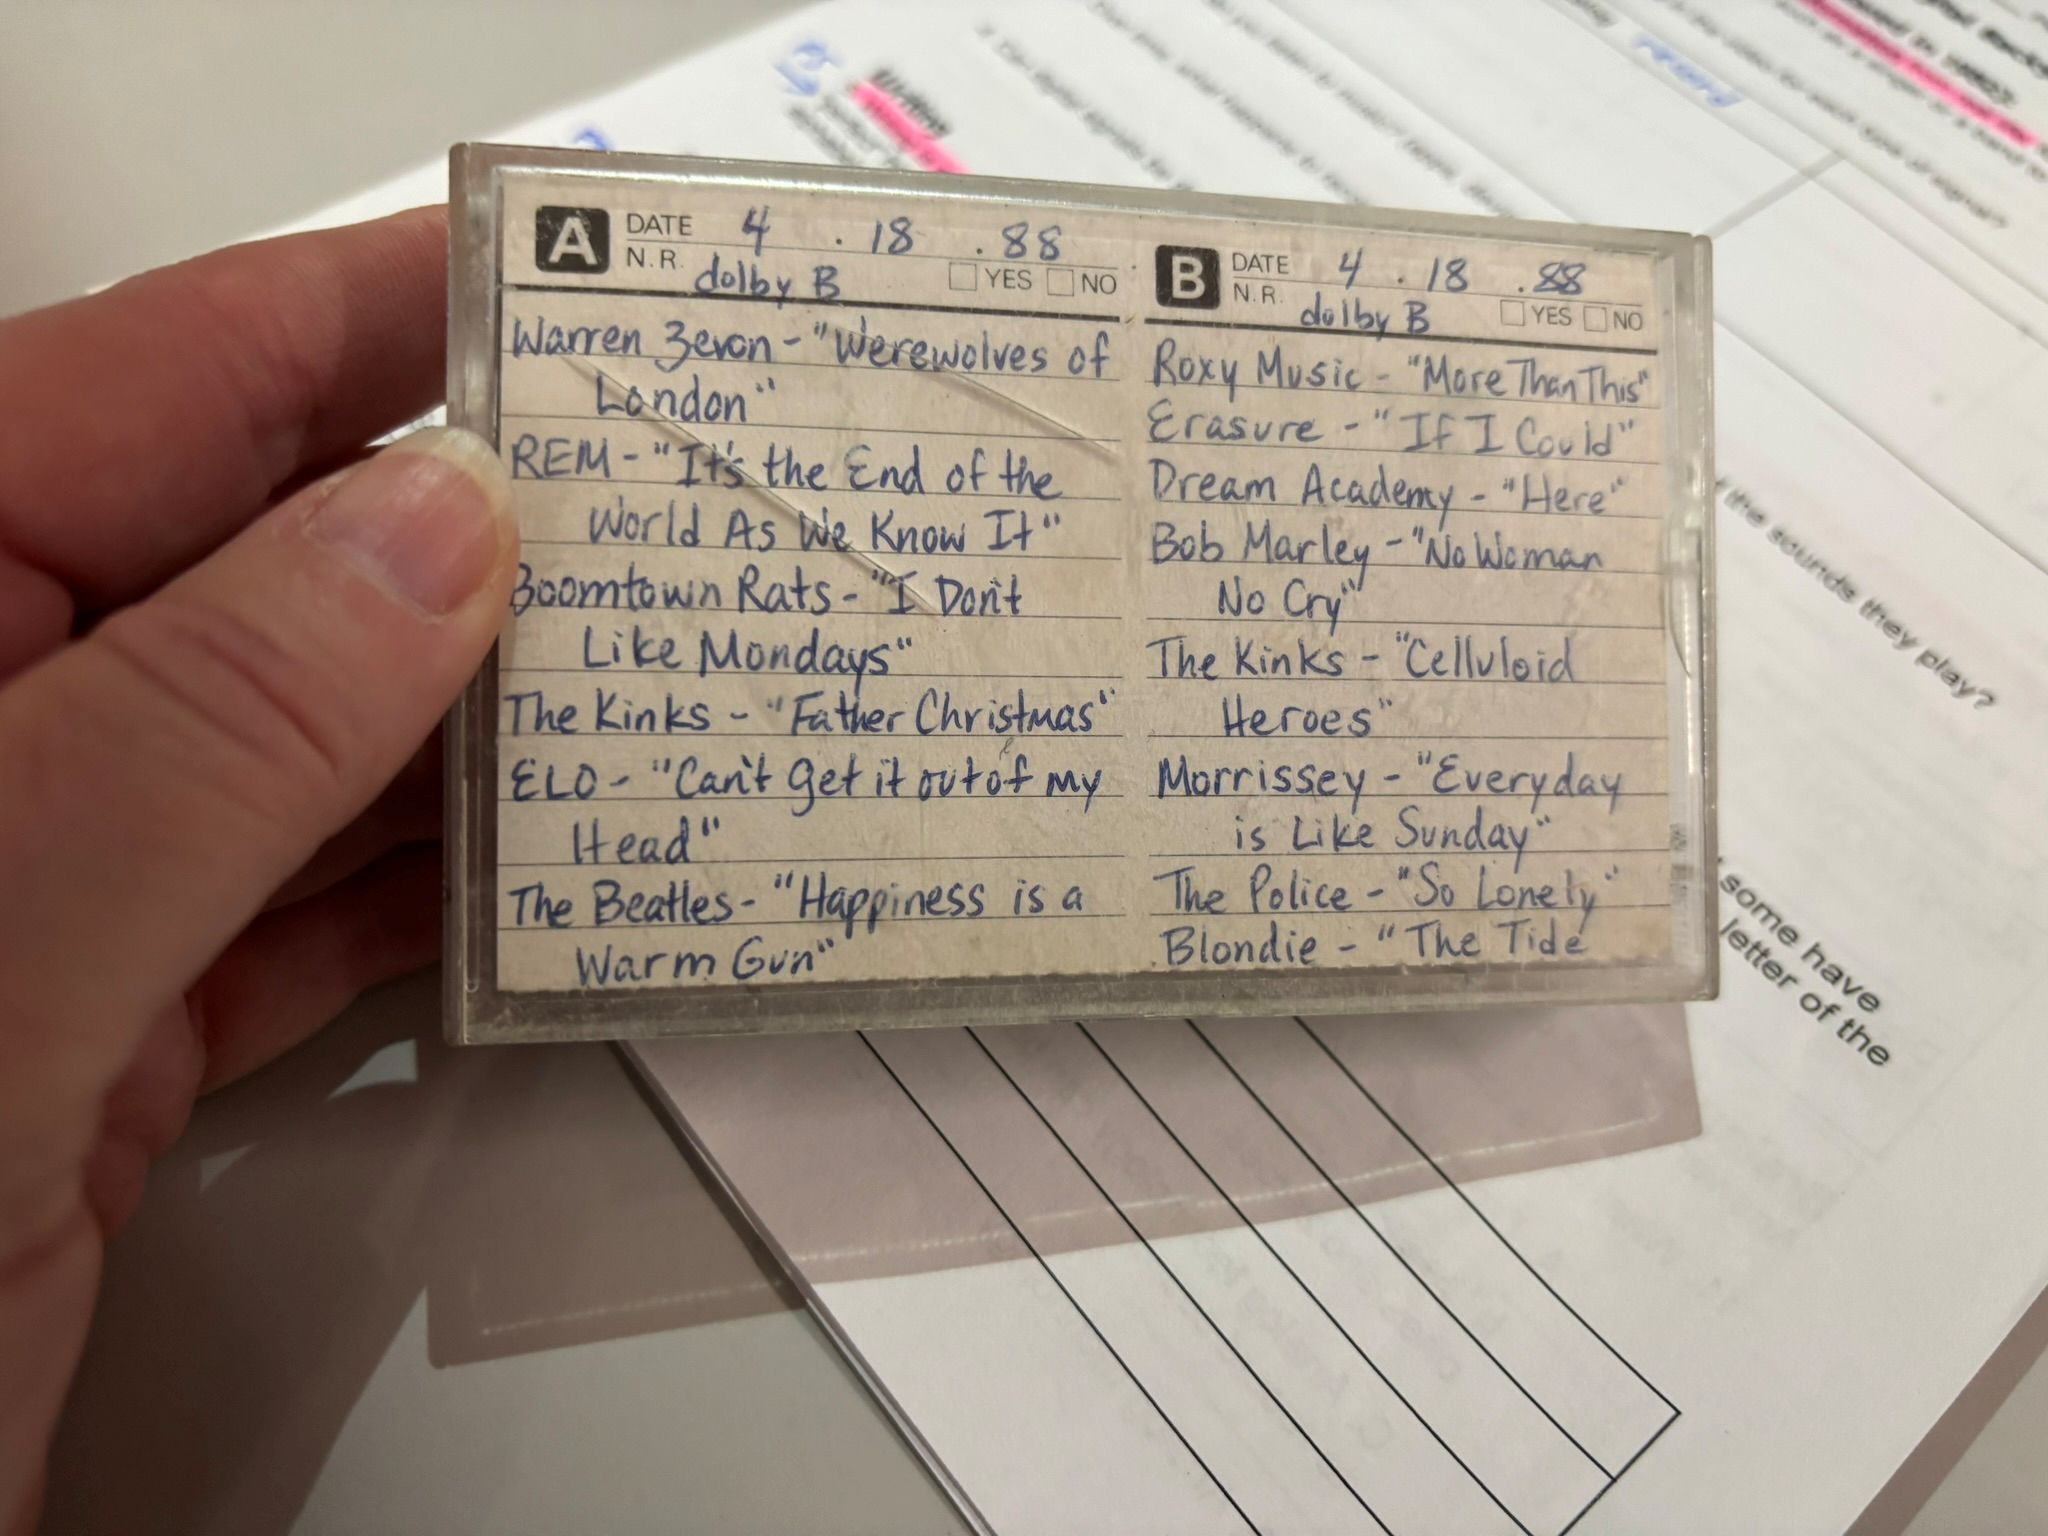 A DATE 4 . 18 . 88
N.R. dolby B YES NO
Warren Zevon - "Werewolves of
London"
REM - "It's the End of the
World As We Know It"
Boomtown Rats - "I Don't
Like Mondays"
The Kinks - "Father Christmas"
ELO - "Can't get it out of my
Head"
The Beatles - "Happiness is a
Warm Gun"
B DATE 4 . 18 . 88
N.R. dolby B YES NO
Roxy Music - "More Than This"
Erasure - "If I Could"
Dream Academy - "Here"
Bob Marley - "No Woman
No Cry"
The Kinks - "Celluloid
Heroes"
Morrissey - "Everyday
is Like Sunday"
The Police - "So Lonely"
Blondie - "The Tide
the sounds they play?
some have
letter of the